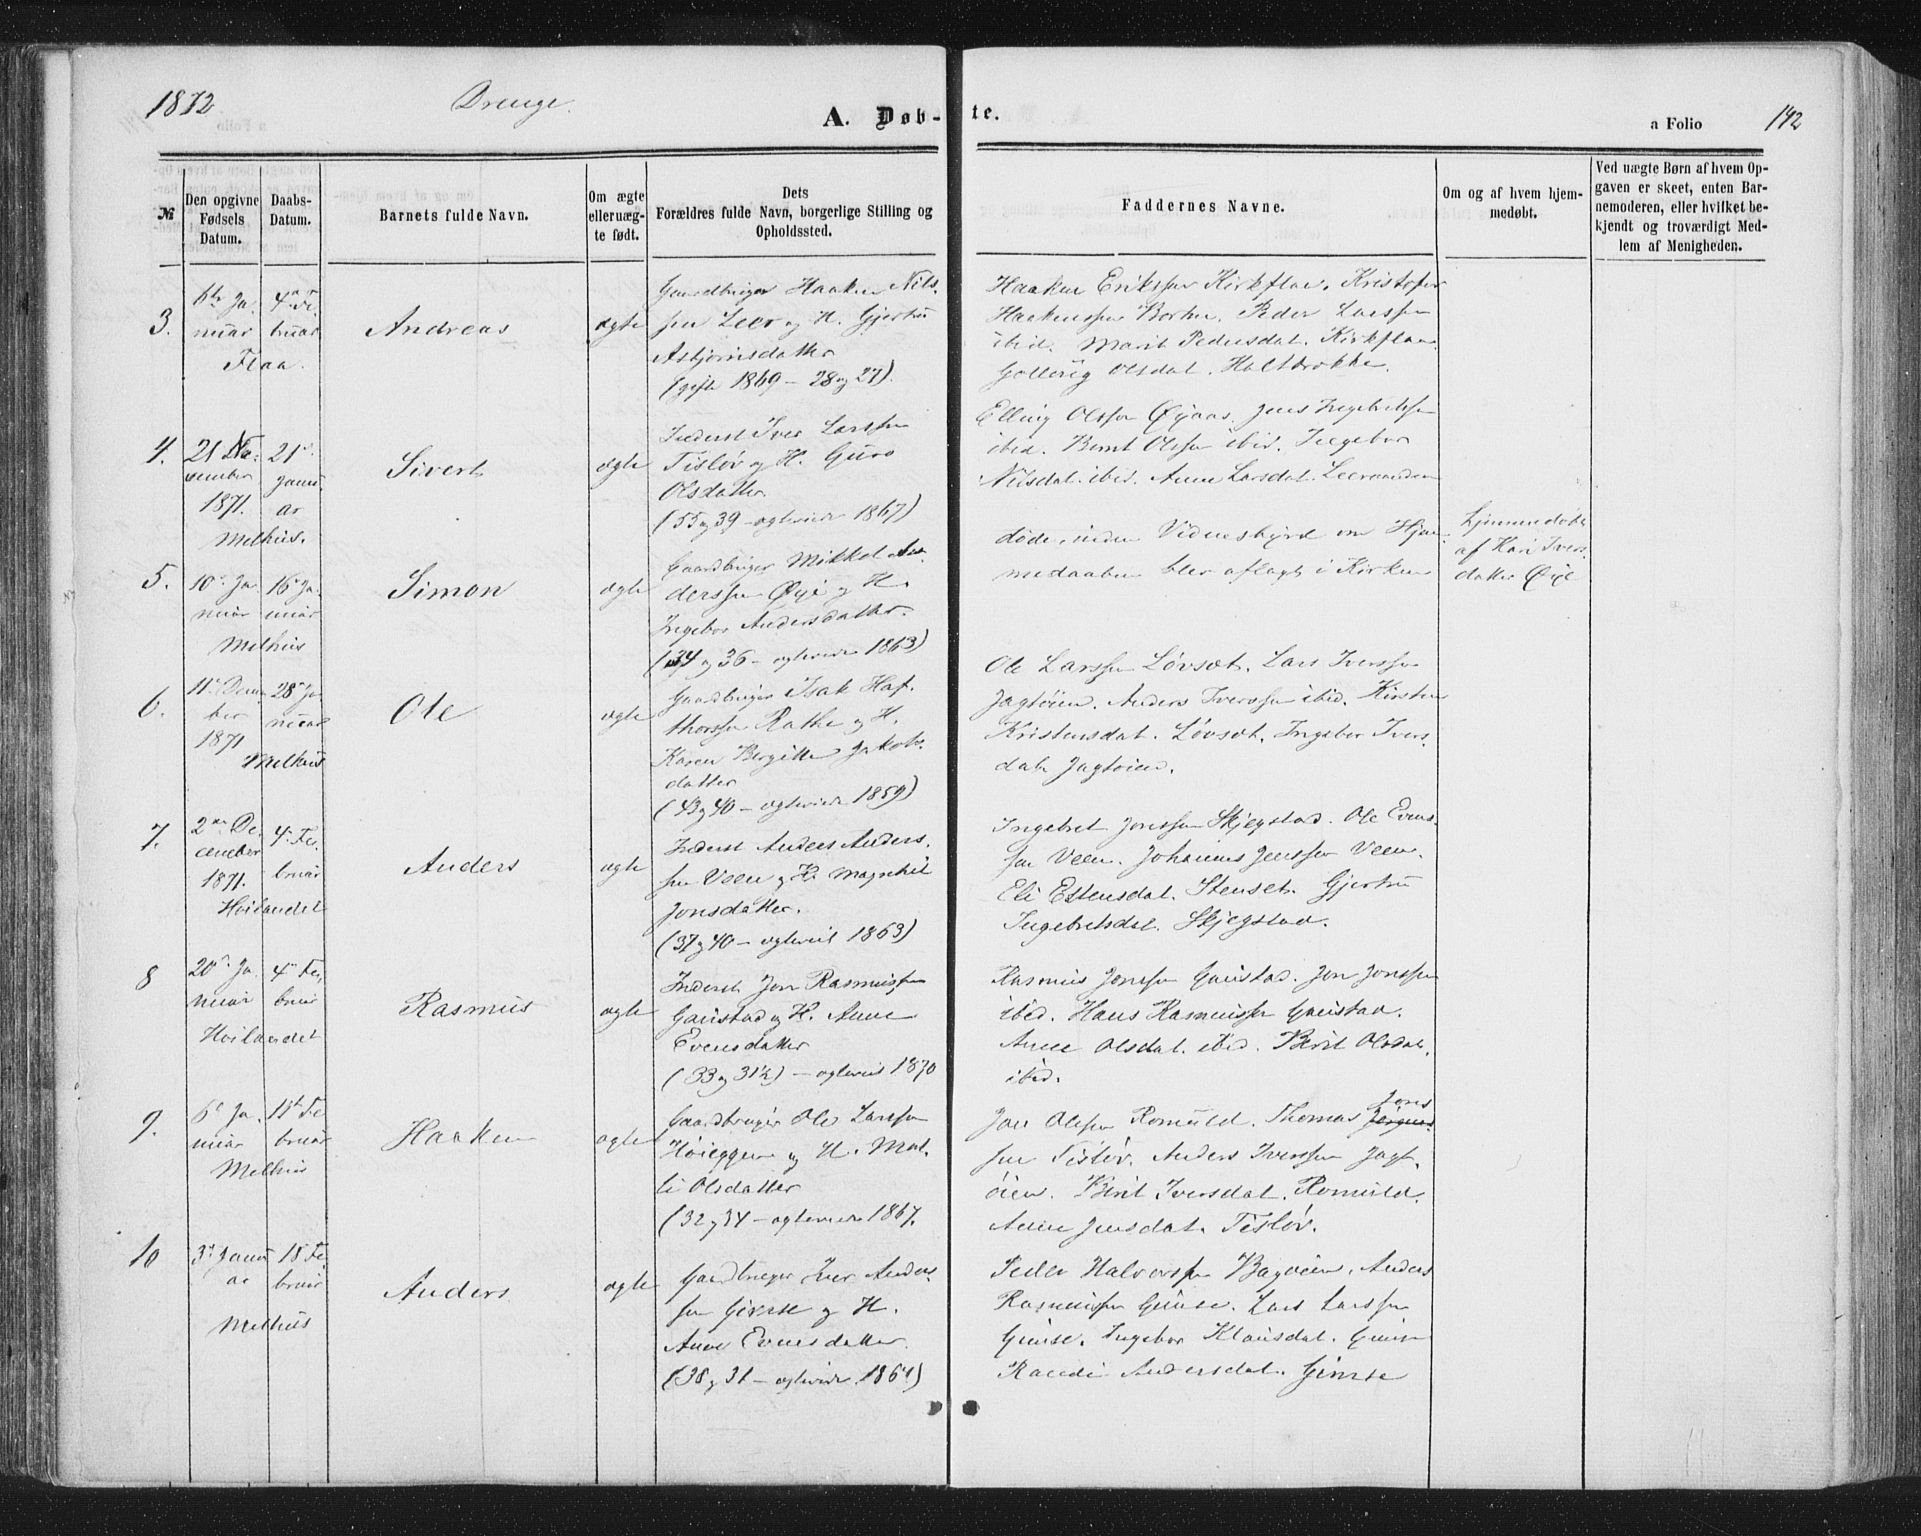 1872 Drenge. A. Døb- te. a Folio 142
№
Den opgivne Fødsels Datum.
Daabs-Datum.
Barnets fulde Navn.
Om ægte eller uæg-te født.
Dets
Forældres fulde Navn, borgerlige Stilling og
Opholdssted.
Faddernes Navne.
Om og af hvem hjem-
medøbt.
Ved uægte Børn af hvem Op-
gaven er skeet, enten Bar-
nemoderen, eller hvilket be-
kjendt og troværdigt Med-
lem af Menigheden.
3.
6te Ja-
nuar
Flaa.
4de Fe-
bruar
Andreas
ægte
Gaardbruger Haaken Nils-
sen Leer og H. Gjertru
Asbjørnsdatter
(gift 1869 - 28 og 27).
Haaken Erikssen Kirkflaa. Kristofer
Haakenssen Borten. Peder Larssen
ibid. Marit Pedersdat. Kirkflaa
Gollaug Olsdat. Haltbrokke.
4.
21 No-
vember
1871.
Melhus.
21de
Janu-
ar
Sivert
ægte
Inderst Iver Larssen
Tisløv og H. Guro
Olsdatter
(55 og 39 - ægteviede 1867)
Elling Olssen Øyaas. Jens Ingebrigtsen
ibid. Bernt Olssen ibid. Ingebor
Nilsdat. ibid. Anne Larsdat. Leersanden
5.
10de Ja-
nuar
Melhus
16de Ja-
nuar
Simon
ægte
Gaardbruger Mikkel An-
derssen Øye og H.
Ingebor Andersdatter.
(34 og 36 - ægteviede 1863)
døde, inden Vidnesbyrd om Hjem-
medaaben blev aflagt i Kirken
hjemmedøbt
af Kari Ivers-
datter Øye
6.
11te Decem-
ber
1871
Melhus
28de Ja-
nuar
Ole
ægte
Gaardbruger Isak Haf-
thorssen Rathe og H.
Karen Bergitte Jakobs-
datter
(43 og 40 - ægteviede 1859)
Ole Larssen Løvset. Lars Iverssen
Jagtøien. Anders Iverssen ibid. Kirsten
Kristensdat. Løvset. Ingebor Ivers-
dat. Jagtøien.
7.
2den De-
cember
1871.
Høilandet
4de Fe-
bruar
Anders
ægte
Inderst Anders Anders-
sen Veen og H. Magnhil
Jonsdatter.
(37 og 40 - ægteviet 1863)
Ingebret Jonssen Skjegstad. Ole Evens-
sen Veen. Johannes Jenssen Veen.
Eli Estensdat. Stenset. Gjertru
Ingebretsdat. Skjegstad.
8
20de Ja-
nuar
Høilandet
4de Fe-
bruar
Rasmus
ægte
Inderst Jon Rasmussen
Gaustad og H. Anne
Evensdatter
(33 og 31½) - ægteviet 1870
Rasmus Jonssen Gaustad. Jon Jonssen
ibid. Hans Rasmussen Gaustad.
Anne Olsdat. ibid. Berit Olsdat.
ibid.
9.
6te Ja-
nuar
Melhus
18de Fe
bruar
Haaken
ægte
Gaardbruger Ole Larssen
Høieggen og H. Mal-
li Olsdatter
(32 og 34 - ægteviede 1867.
Jon Olssen Romuld. Thomas Jons
sen Tisløv. Anders Iverssen Jagt-
øien. Berit Iversdat. Romuld.
Anne Jensdat. Tisløv.
10
3de Janu
ar
Melhus
18 Fe-
bruar
Anders
ægte
Gardbruger Iver Anders-
sen Gimse og H.
Anne Evensdatter
(38 og 31 - ægteviede 1864)
Peder Halvorssen Bagøien. Anders
Rasmussen Gimse. Lars Larssen
Gimse. Ingebor Klausdat. Gimse
Andersdat. Gimse